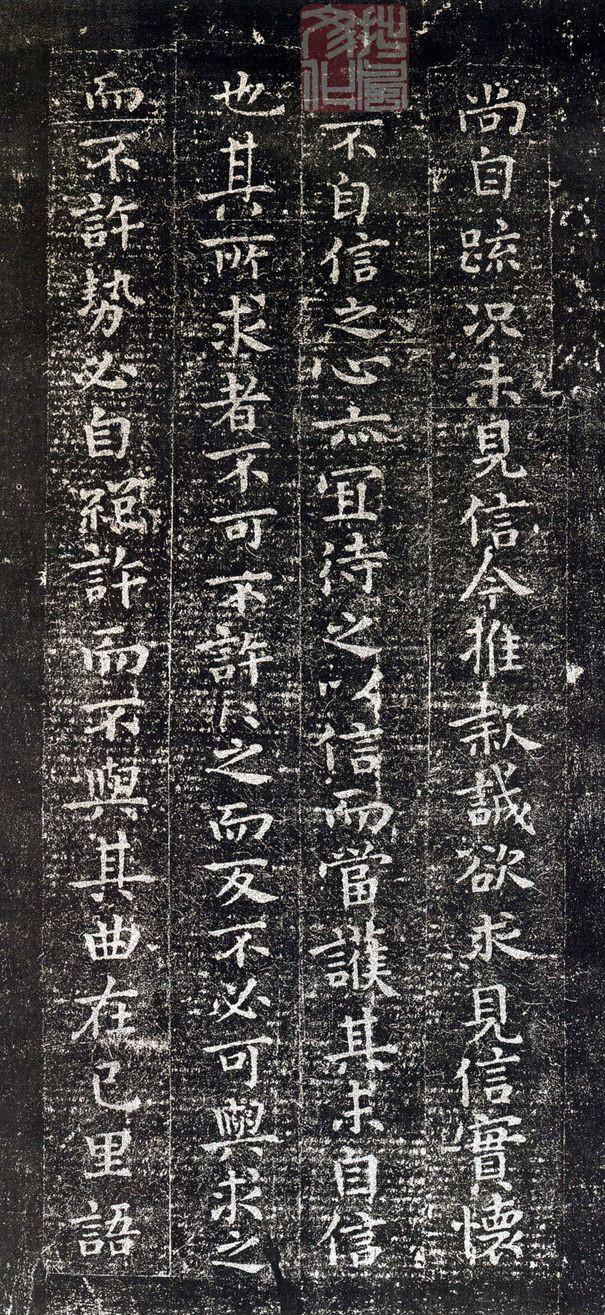 尚自疏况未見信今推款誠欲求見信實懷
不自信之心亦宜待之以信而當護其未自信
也其所求者不可不許〻之而反不必可與求之
而不許勢必自絕許而不與其曲在己里語